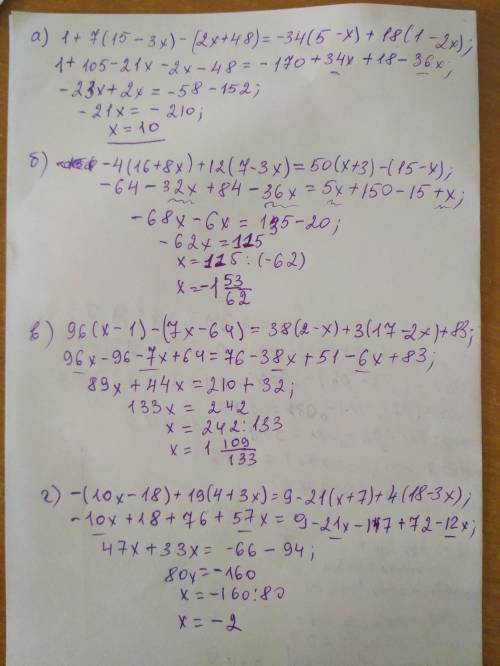 а) 1+7(15-3x)-(2x+48)=-34(5-x)+18(1-2x);
1+105-21x-2x-48=-170+34x+18-36x;
-23x+2x=-58-152;
-21x=-210;
x=10
б) -4(16+8x)+12(7-3x)=50(x+3)-(15-x);
-64-32x+84-36x=5x+150-15+x;
-68x-6x=135-20;
-62x=115
x=115:(-62)
x=-1 53/62
в) 96(x-1)-(7x-64)=38(2-x)+3(17-2x)+83;
96x-96-7x+64=76-38x+51-6x+83;
89x+44x=210+32;
133x=242
x=242:133
x=1 109/133
г) -(10x-18)+19(4+3x)=9-21(x+7)+4(18-3x);
-10x+18+76+57x=9-21x-147+72-12x;
47x+33x=-66-94;
80x=-160
x=-160:80
x=-2